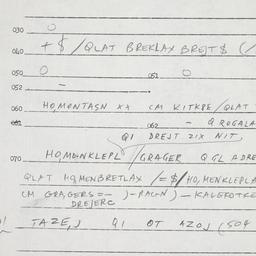 030 O
040 + $ / QLAT BREKLAX BREJT $ (/
050 O 051 O
052 –
060 HOMONTASN XX CM KITKPE / QLAT
061 062 – Q ROGALA
QI DREJT ZIX NIT
070 HOMONKLEPL / GRAGER Q GL ADRE
QLAT HOMENBRETLAX / = $ / HO, MENKLEPLA
CM GRAGERS = – ) – RAGN ) – KALEFOTKE
DREJERC
TAZE, J QI OT AZOJ (504